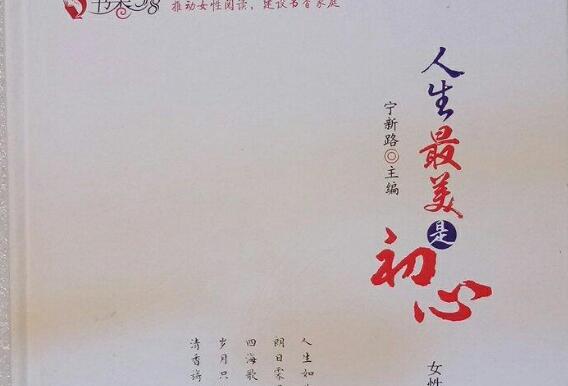 书香38
推动女性阅读，建设书香家庭
人生最美是初心
宁新路◎主编
女性
人生如
明日霁
四海歌
岁月只
清香旖